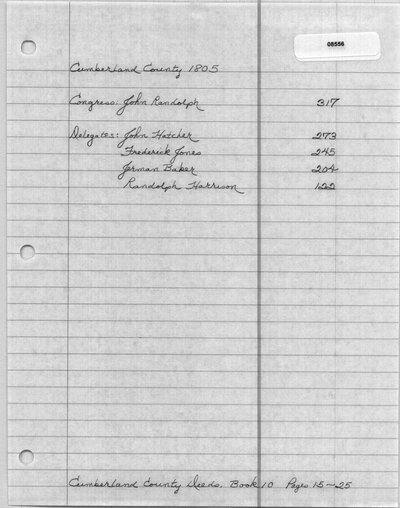 08556
Cumberland County 1805
Congress: John Randolph 317
Delegates: John Hatcher 273
Frederick Jones 245
Jerman Baker 204
Randolph Harrison 122
Cumberland County Deeds, Book 10 Pages 15-25